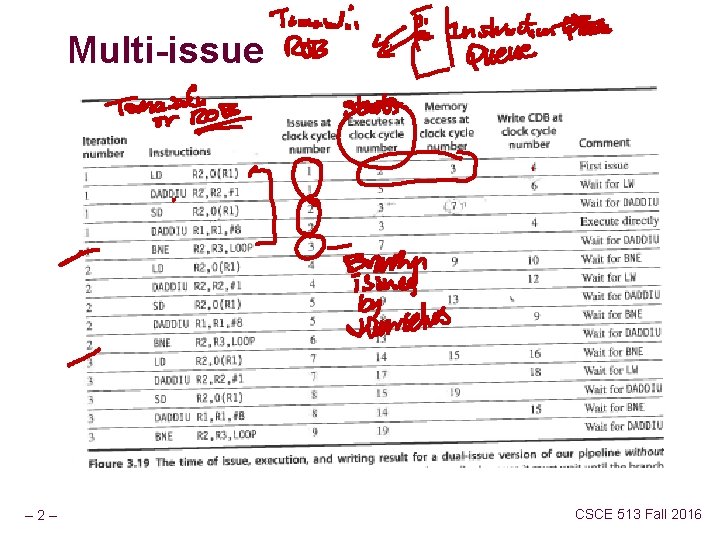 Multi-issue
Instruction
Queue
Issues at clock cycle number
Executes at clock cycle number
Memory access at clock cycle number
Write CDB at clock cycle number
Iteration number Instructions Comment
1 LD R2,0(R1) 1 2 3 4 First issue
1 DADDIU R2,R2,#1 1 5 6 Wait for LW
1 SD R2,0(R1) 2 3 7 Wait for DADDIU
1 DADDIU R1,R1,#8 2 3 4 Execute directly
1 BNE R2,R3,LOOP 3 7 Wait for DADDIU
2 LD R2,0(R1) 4 9 10 Wait for BNE
2 DADDIU R2,R2,#1 4 12 Wait for LW
2 SD R2,0(R1) 5 9 13 Wait for DADDIU
2 DADDIU R1,R1,#8 5 9 Wait for BNE
2 BNE R2,R3,LOOP 6 13 Wait for DADDIU
3 LD R2,0(R1) 7 14 15 16 Wait for BNE
3 DADDIU R2,R2,#1 7 17 18 Wait for LW
3 SD R2,0(R1) 8 15 19 Wait for DADDIU
3 DADDIU R1,R1,#8 8 14 15 Wait for BNE
3 BNE R2,R3,LOOP 9 19 Wait for DADDIU
Branch
issued
by
themselves
Figure 3.19 The time of issue, execution, and writing result for a dual-issue version of our pipeline without
– 2 –
CSCE 513 Fall 2016